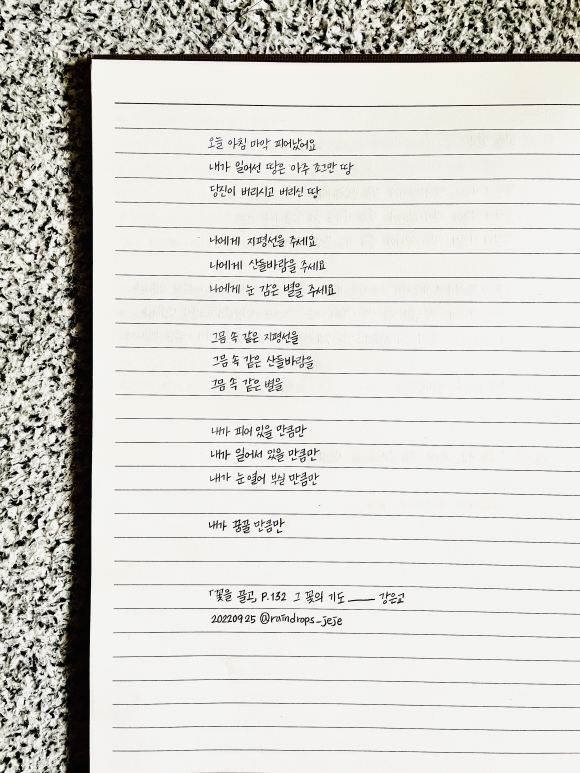 오늘 아침 마악 피어났어요
내가 일어선 땅은 아주 조그만 땅
당신이 버리시고 버리신 땅

나에게 지평선을 주세요
나에게 산들바람을 주세요
나에게 눈 감은 별을 주세요

그믐 속 같은 지평선을
그믐 속 같은 산들바람을
그믐 속 같은 별을

내가 피어 있을 만큼만
내가 일어서 있을 만큼만
내가 눈 열어 부실 만큼만

내가 꿈꿀 만큼만

「꽃을 끌고」 P.132 그 꽃의 기도 —— 강은교
20220925 @raindrops_jeje